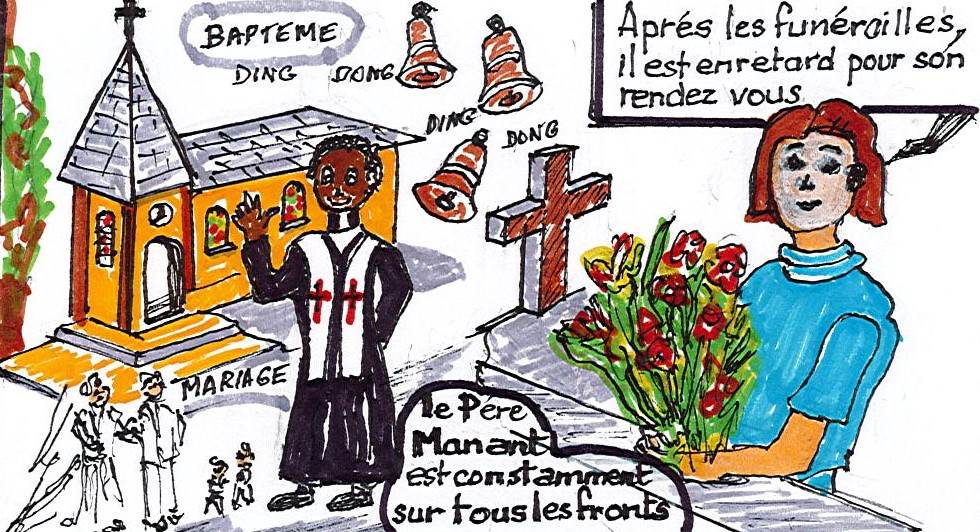 BAPTEME
DING DONG
DING
DONG
Aprés les funérailles,
il est en retard pour son
rendez vous
MARIAGE
le Père
Manant
est constamment
sur tous les fronts